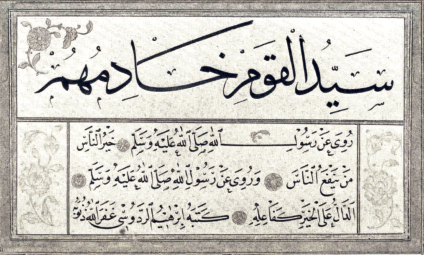 سَيِّدُ الْقَوْمِ خَادِمُهُمْ
رُوِىَ عَنْ رَسُولِ اللّٰهِ صَلَّى اللّٰهُ عَلَيْهِ وَسَلَّمَ خَيْرُ النَّاسِ
مَنْ يَنْفَعُ النَّاسَ وَرُوِىَ عَنْ رَسُولِ اللّٰهِ صَلَّى اللّٰهُ عَلَيْهِ وَسَلَّمَ
الدَّالُّ عَلَى الْخَيْرِ كَفَاعِلِهِ كَتَبَهُ اِبْرٰهِيمُ غَفَرَ اللّٰهُ ذُنُوبَهُ